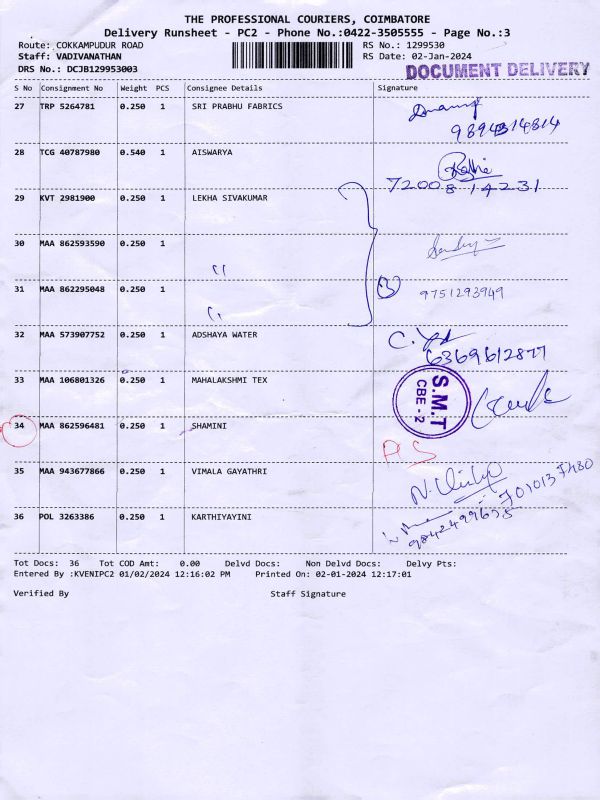 THE PROFESSIONAL COURIERS, COIMBATORE
Delivery Runsheet - PC2 - Phone No.:0422-3505555 - Page No.:3
Route: COKKAMPUDUR ROAD RS No.: 1299530
Staff: VADIVANATHAN RS Date: 02-Jan-2024
DRS No.: DCJB129953003 DOCUMENT DELIVERY
S No Consignment No Weight PCS Consignee Details Signature
27 TRP 5264781 0.250 1 SRI PRABHU FABRICS
9894314814
28 TCG 40787980 0.540 1 AISWARYA
72008 14231
29 KVT 2981900 0.250 1 LEKHA SIVAKUMAR
30 MAA 862593590 0.250 1
"
31 MAA 862295048 0.250 1 3 9751293949
"
32 MAA 573907752 0.250 1 ADSHAYA WATER
6369612877
33 MAA 106801326 0.250 1 MAHALAKSHMI TEX
S.M.T
CBE - 2
34 MAA 862596481 0.250 1 SHAMINI
AS
35 MAA 943677866 0.250 1 VIMALA GAYATHRI
36 POL 3263386 0.250 1 KARTHIYAYINI
9842499675
Tot Docs: 36 Tot COD Amt: 0.00 Delvd Docs: Non Delvd Docs: Delvy Pts:
Entered By :KVENIPC2 01/02/2024 12:16:02 PM Printed On: 02-01-2024 12:17:01
Verified By Staff Signature